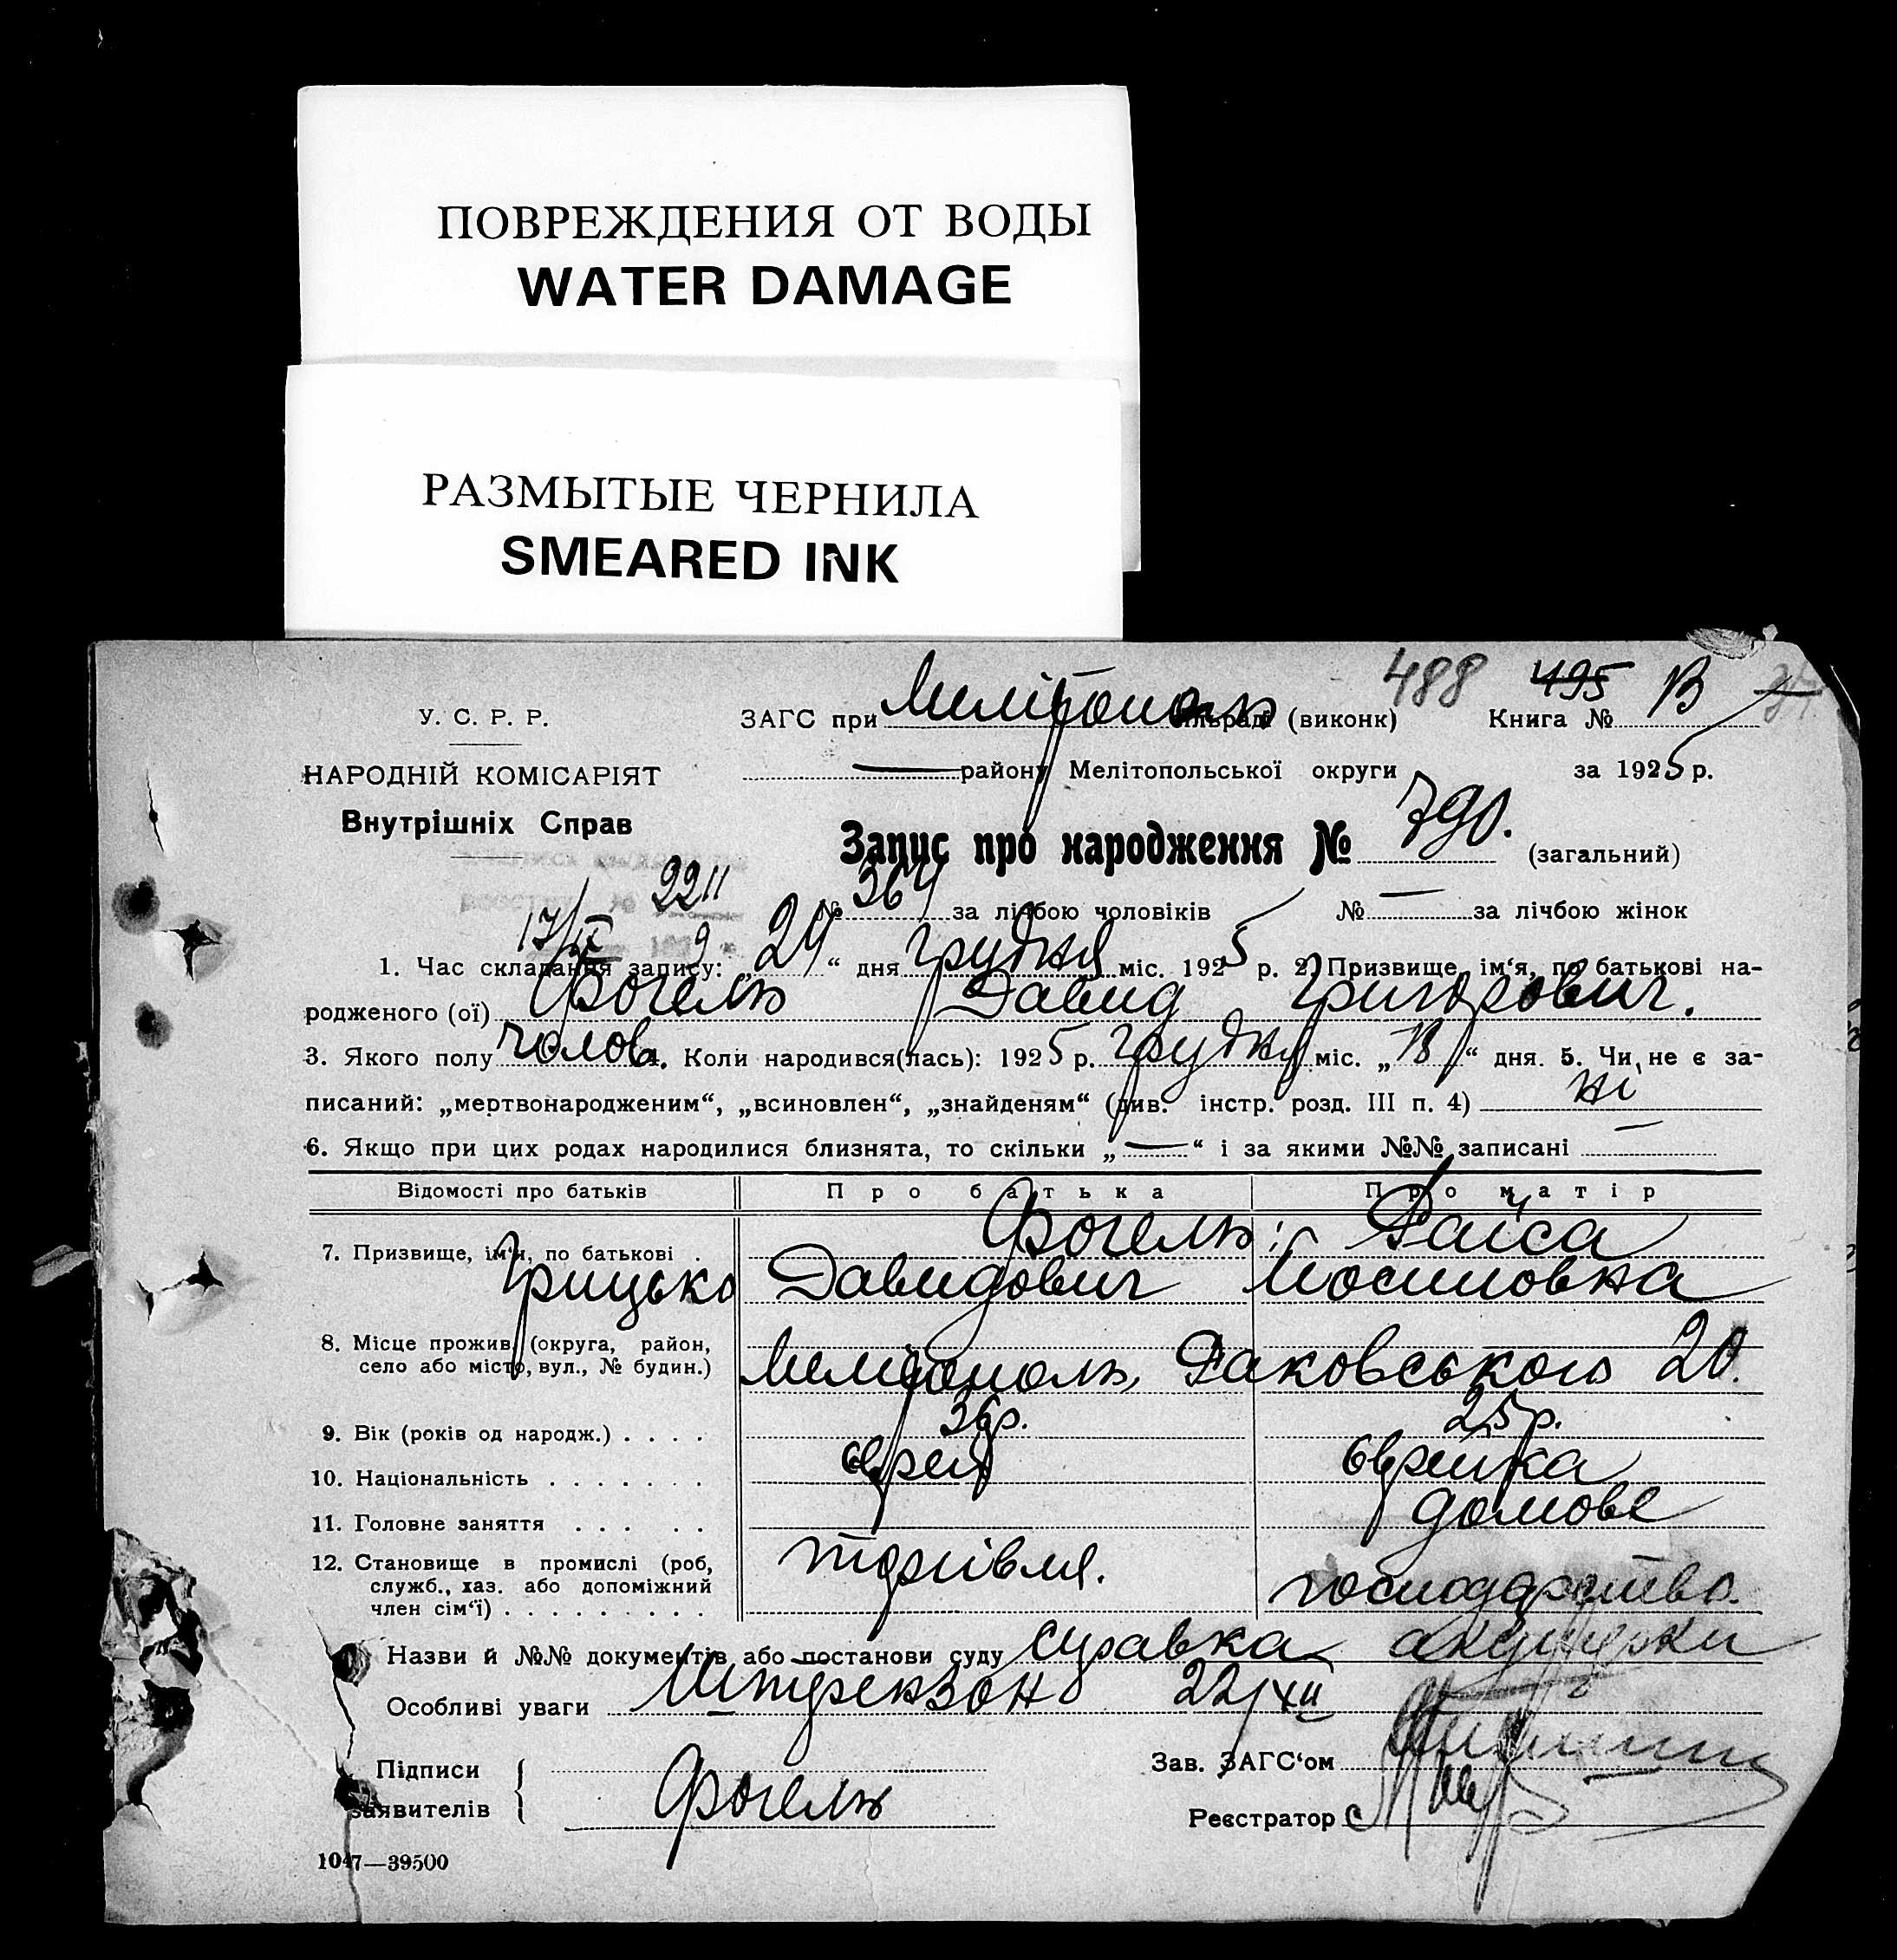 ПОВРЕЖДЕНИЯ ОТ ВОДЫ
WATER DAMAGE
РАЗМЫТЫЕ ЧЕРНИЛА
SMEARED INK
488 495
У. С. Р. Р.
ЗАГС при Мелітополь сільраді (виконк) Книга № В
НАРОДНІЙ КОМІСАРІЯТ
— району Мелітопольської округи за 1925 р.
Внутрішніх Справ
Запис про народження № 790. (загальний)
2211
№ 364 за лічбою чоловіків № — за лічбою жінок
1. Час складання запису: „24“ дня грудня міс. 1925 р. 2. Призвище, ім‘я, по батькові на-
родженого (ої) Фогель Давид Григорович.
3. Якого полу чолов 4. Коли народився(лась): 1925 р. грудня міс. „13“ дня. 5. Чи не є за-
писаний: „мертвонародженим“, „всиновлен“, „знайденям“ (див. інстр. розд. III п. 4) ні
6. Якщо при цих родах народилися близнята, то скільки „—“ і за якими №№ записані —
Відомості про батьків Про батька Про матір
7. Призвище, ім‘я, по батькові . Фогель: Раїса
Грицько Давидович Йосиповна
8. Місце прожив. (округа, район,
село або місто, вул., № будин.) Мелітополь, Раковського 20.
9. Вік (років од народж.) . . . . 36 р. 25 р.
10. Національність . . . . . . . еврей еврейка
11. Головне заняття . . . . . домове
12. Становище в промислі (роб,
служб., хаз. або допоміжний
член сім‘ї) . . . . . . . . . торгівля. господарство.
Назви й №№ документів або постанови суду справка акушерки
Особливі уваги Штрензон 22/XII
Підписи
заявителів Фогель
Зав. ЗАГС‘ом
Реєстратор
1047—39500